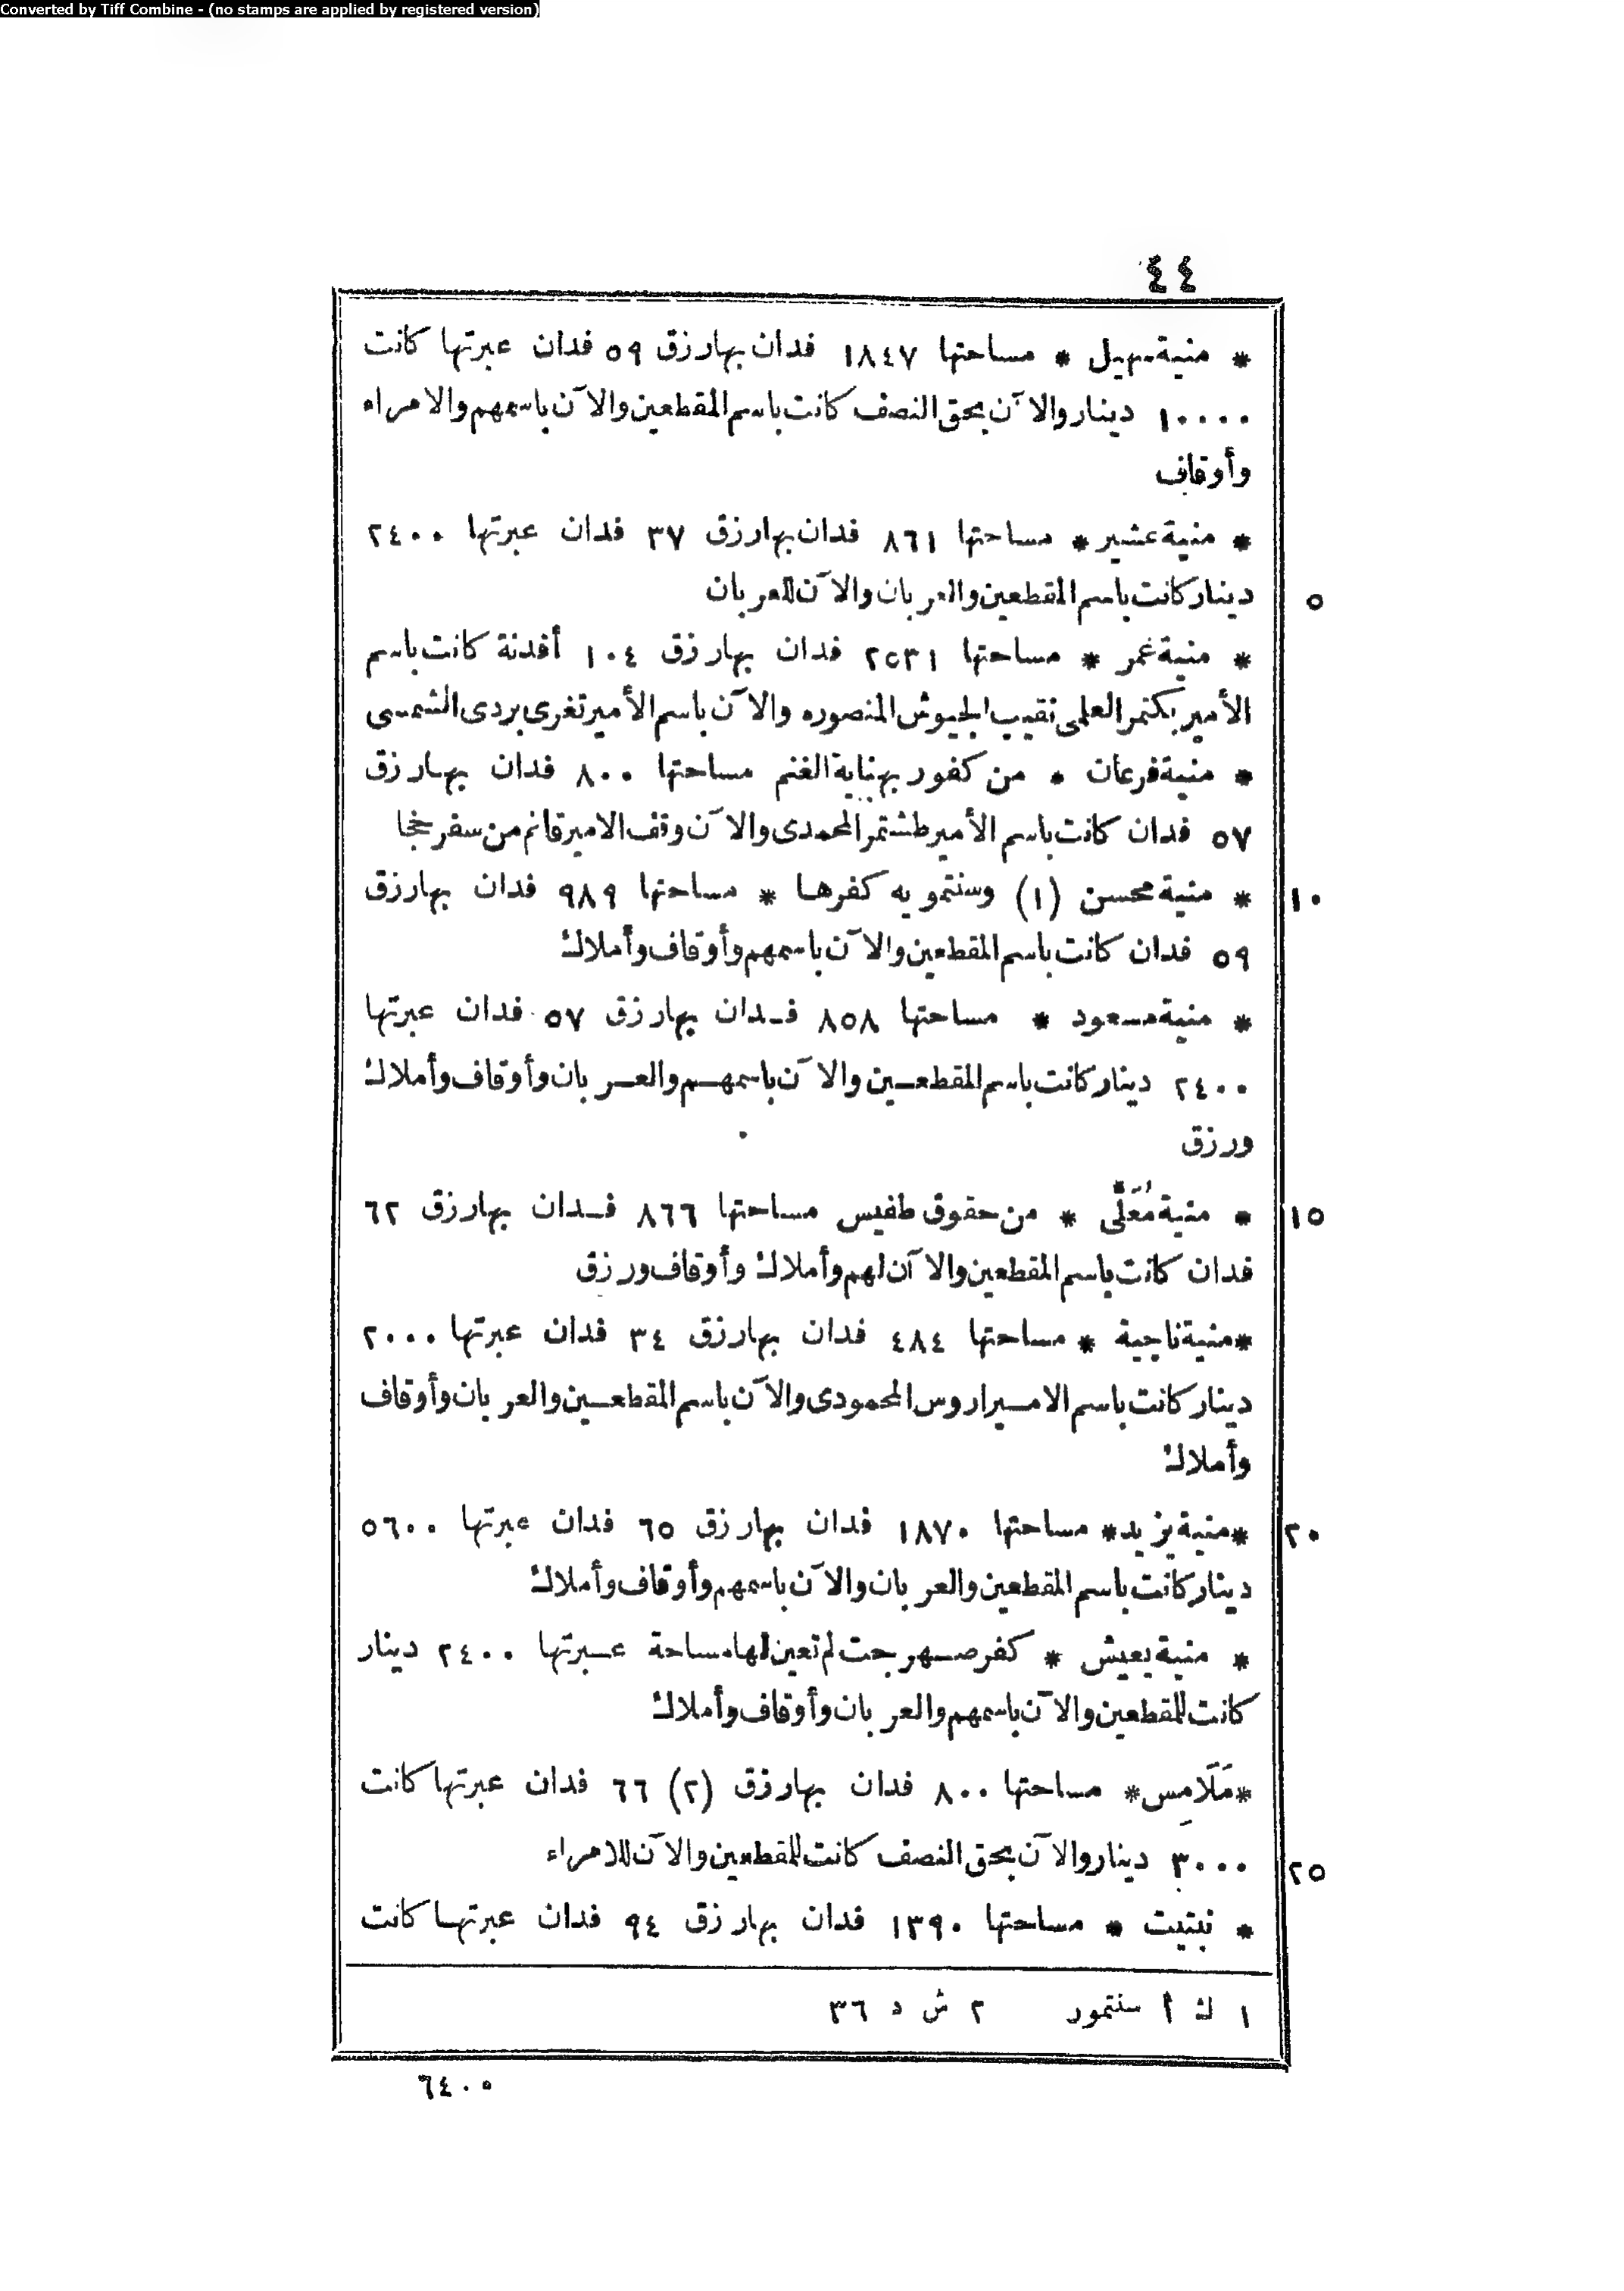 Converted by Tiff Combine - (no stamps are applied by registered version)
٤٤
* منية سهيل * مساحتها ١٨٤٧ فدان بها رزق ٥٩ فدان عبرتها كانت
١٠٠٠٠ دينار والآن بحق النصف كانت باسم المقطعين والآن باسمهم والامراء
وأوقاف
* منية عشير * مساحتها ٨٦١ فدان بها رزق ٣٧ فدان عبرتها ٢٤٠٠
٥ دينار كانت باسم المقطعين والعربان والآن للعربان
* منية غمر * مساحتها ٢٥٣١ فدان بها رزق ١٠٤ أفدنة كانت باسم
الأمير بكتمر العلمى نقيب الجيوش المنصوره والآن باسم الأمير تغرى بردى الشمسى
* منية فرعان * من كفور بهناية الغنم مساحتها ٨٠٠ فدان بها رزق
٥٧ فدان كانت باسم الأمير طشتمر المحمدى والآن وقف الامير قانم من سفر خجا
١٠ * منية محسن (١) وسنتمويه كفرها * مساحتها ٩٨٩ فدان بها رزق
٥٩ فدان كانت باسم المقطعين والآن باسمهم وأوقاف وأملاك
* منية مسعود * مساحتها ٨٥٨ فدان بها رزق ٥٧ فدان عبرتها
٢٤٠٠ دينار كانت باسم المقطعين والآن باسمهم والعربان وأوقاف وأملاك
ورزق
١٥ * منية مُعَلَّى * من حقوق طفيس مساحتها ٨٦٦ فدان بها رزق ٦٢
فدان كانت باسم المقطعين والآن لهم وأملاك وأوقاف ورزق
* منية ناجية * مساحتها ٤٨٤ فدان بها رزق ٣٤ فدان عبرتها ٢٠٠٠
دينار كانت باسم الامير اروس المحمودى والآن باسم المقطعين والعربان وأوقاف
وأملاك
٢٠ * منية يزيد * مساحتها ١٨٧٠ فدان بها رزق ٦٥ فدان عبرتها ٥٦٠٠
دينار كانت باسم المقطعين والعربان والآن باسمهم وأوقاف وأملاك
* منية يعيش * كفر صهرجت لم تعين لها مساحة عبرتها ٢٤٠٠ دينار
كانت للمقطعين والآن باسمهم والعربان وأوقاف وأملاك
* مَلَامِس * مساحتها ٨٠٠ فدان بها رزق (٢) ٦٦ فدان عبرتها كانت
٢٥ ٣٠٠٠ دينار والآن بحق النصف كانت للمقطعين والآن للامراء
* نبتيت * مساحتها ١٣٩٠ فدان بها رزق ٩٤ فدان عبرتها كانت
١ ك أ سنتمود ٢ ش د ٣٦
٦٤٠٠